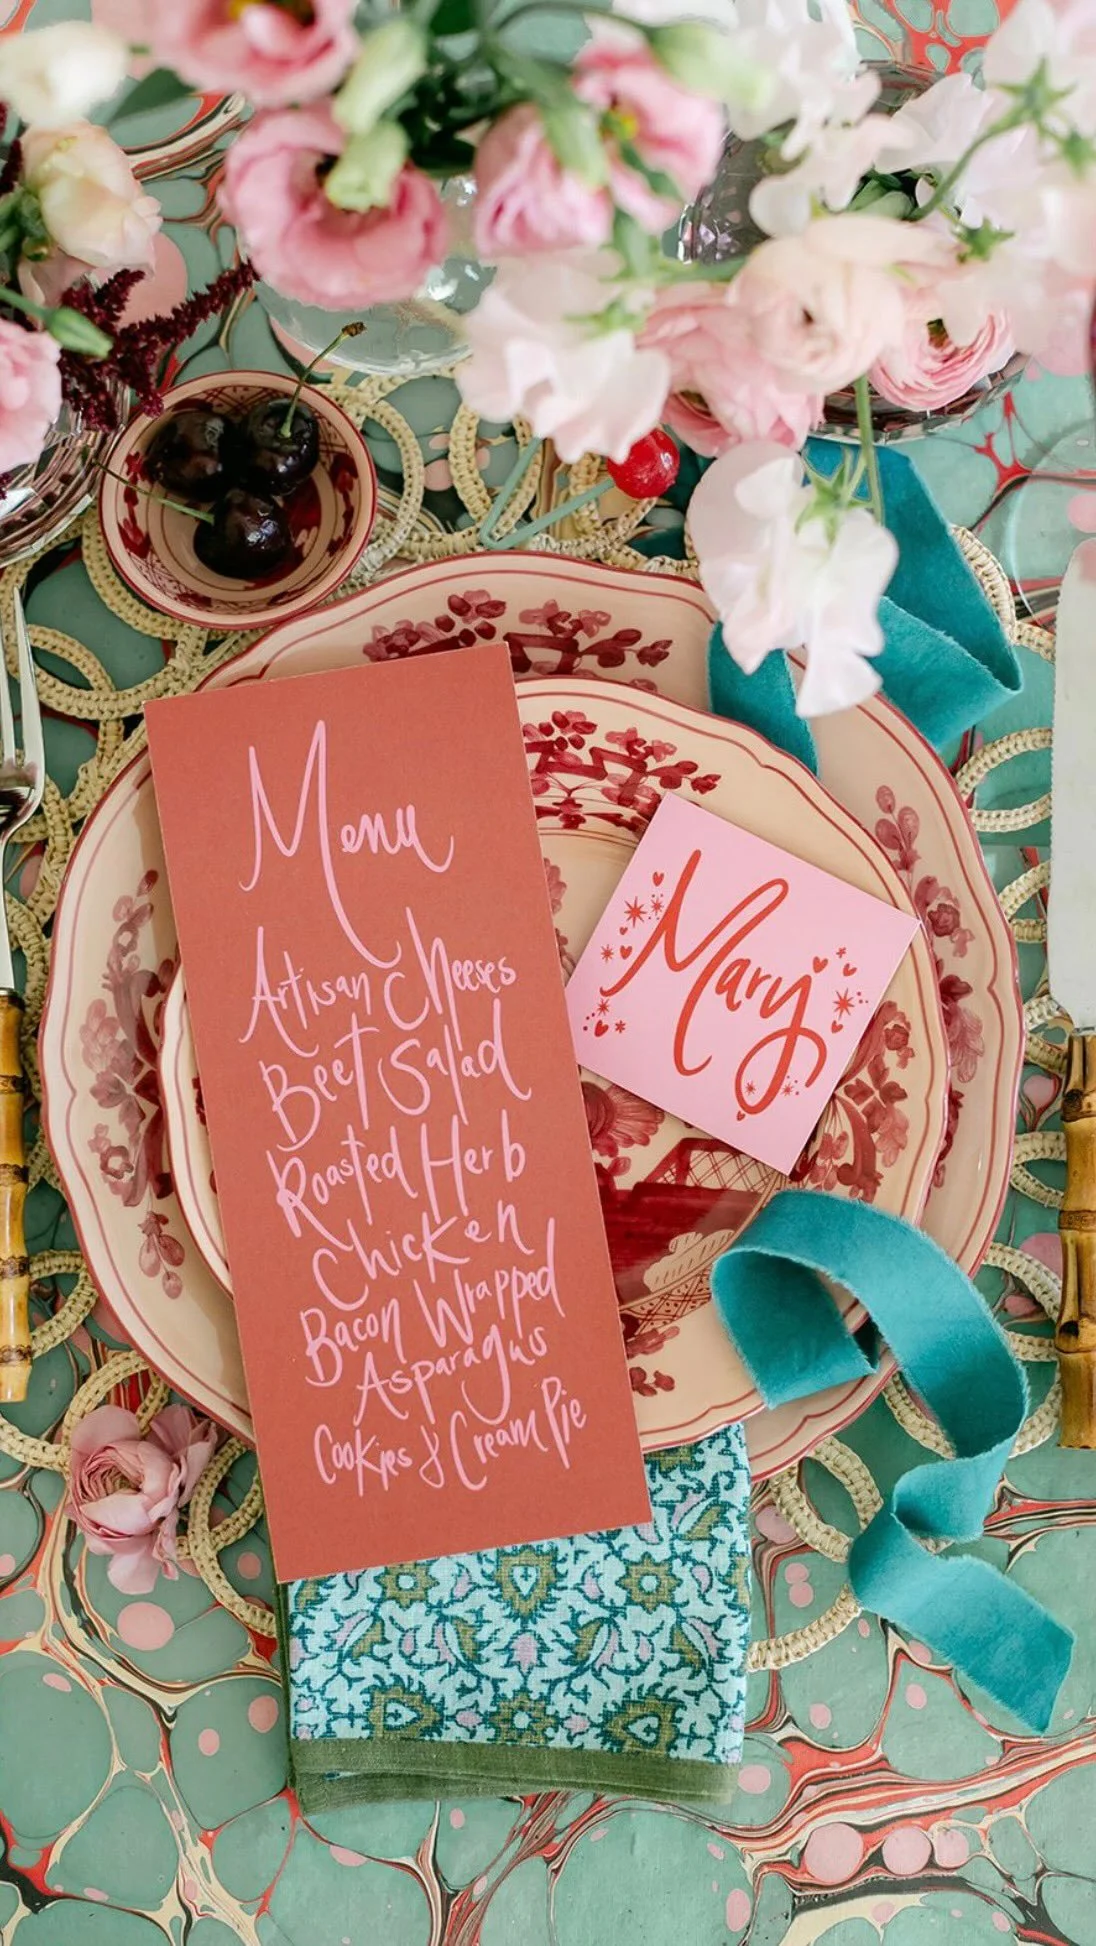 Menu
Artisan Cheeses
Beet Salad
Roasted Herb
Chicken
Bacon Wrapped
Asparagus
Cookies & Cream Pie
Mary